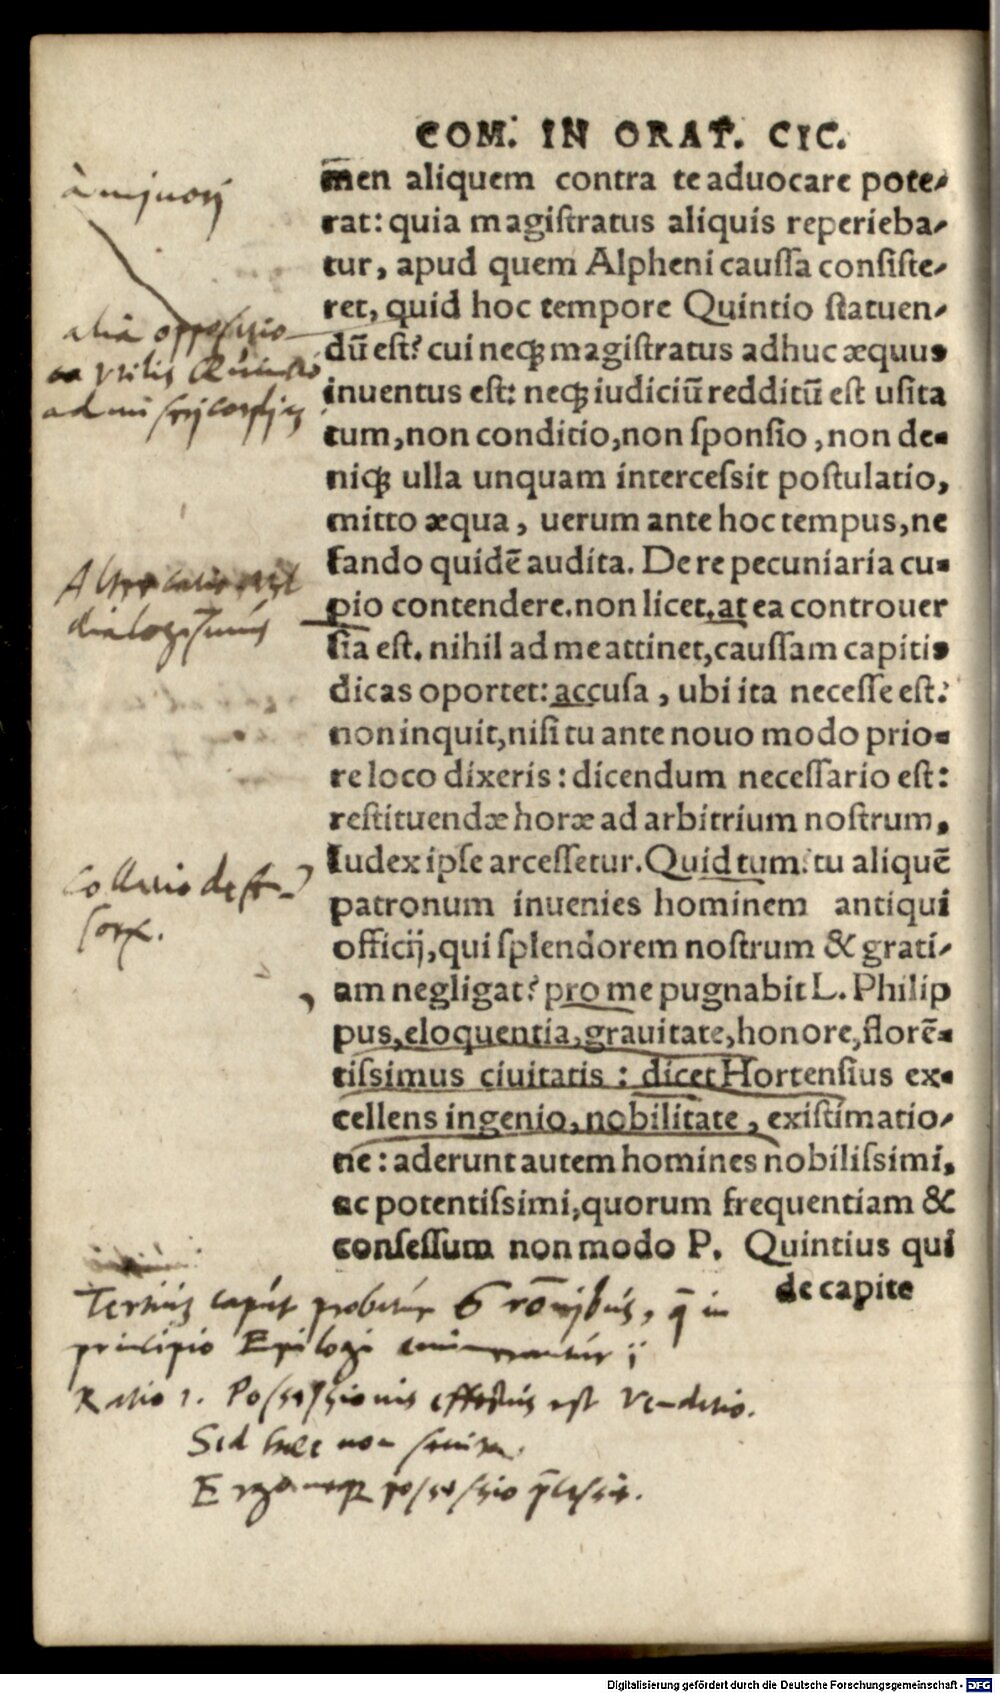 COM. IN ORAT. CIC.
à minori
m̄en aliquem contra te aduocare pote-
rat: quia magiſtratus aliquis reperieba-
tur, apud quem Alpheni cauſſa conſiſte-
ret, quid hoc tempore Quintio ſtatuen-
dū eſt? cui neq; magiſtratus adhuc æquus
inuentus eſt: neq; iudiciū redditū eſt uſita
tum, non conditio, non ſponſio, non de-
niq; ulla unquam interceſsit poſtulatio,
mitto æqua, uerum ante hoc tempus, ne
fando quidē audita. De re pecuniaria cu-
pio contendere. non licet. at ea controuer
ſia eſt. nihil ad me attinet, cauſſam capitis
dicas oportet: accuſa, ubi ita neceſſe eſt.
non inquit, niſi tu ante nouo modo prio-
re loco dixeris: dicendum neceſſario eſt:
reſtituendæ horæ ad arbitrium noſtrum,
Iudex ipſe arceſſetur. Quid tum? tu aliquē
patronum inuenies hominem antiqui
officij, qui ſplendorem noſtrum & grati-
am negligat? pro me pugnabit L. Philip
pus, eloquentia, grauitate, honore, florē-
tiſsimus ciuitatis: dicet Hortenſius ex-
cellens ingenio, nobilitate, exiſtimatio-
ne: aderunt autem homines nobiliſsimi,
ac potentiſsimi, quorum frequentiam &
conſeſſum non modo P. Quintius qui
de capite
alia oppoſitio
ad miſericordiã
dialogiſmus
Collatio defen-
ſorũ.
Tertiũ caput probatur 6 rōnibus, q̄ in
principio Epilogi
Ratio 1. Poſſeſſionis effectus eſt Venditio.
Sed hæc non
Ergo neq; poſſeſſio
Digitalisierung gefördert durch die Deutsche Forschungsgemeinschaft - DFG